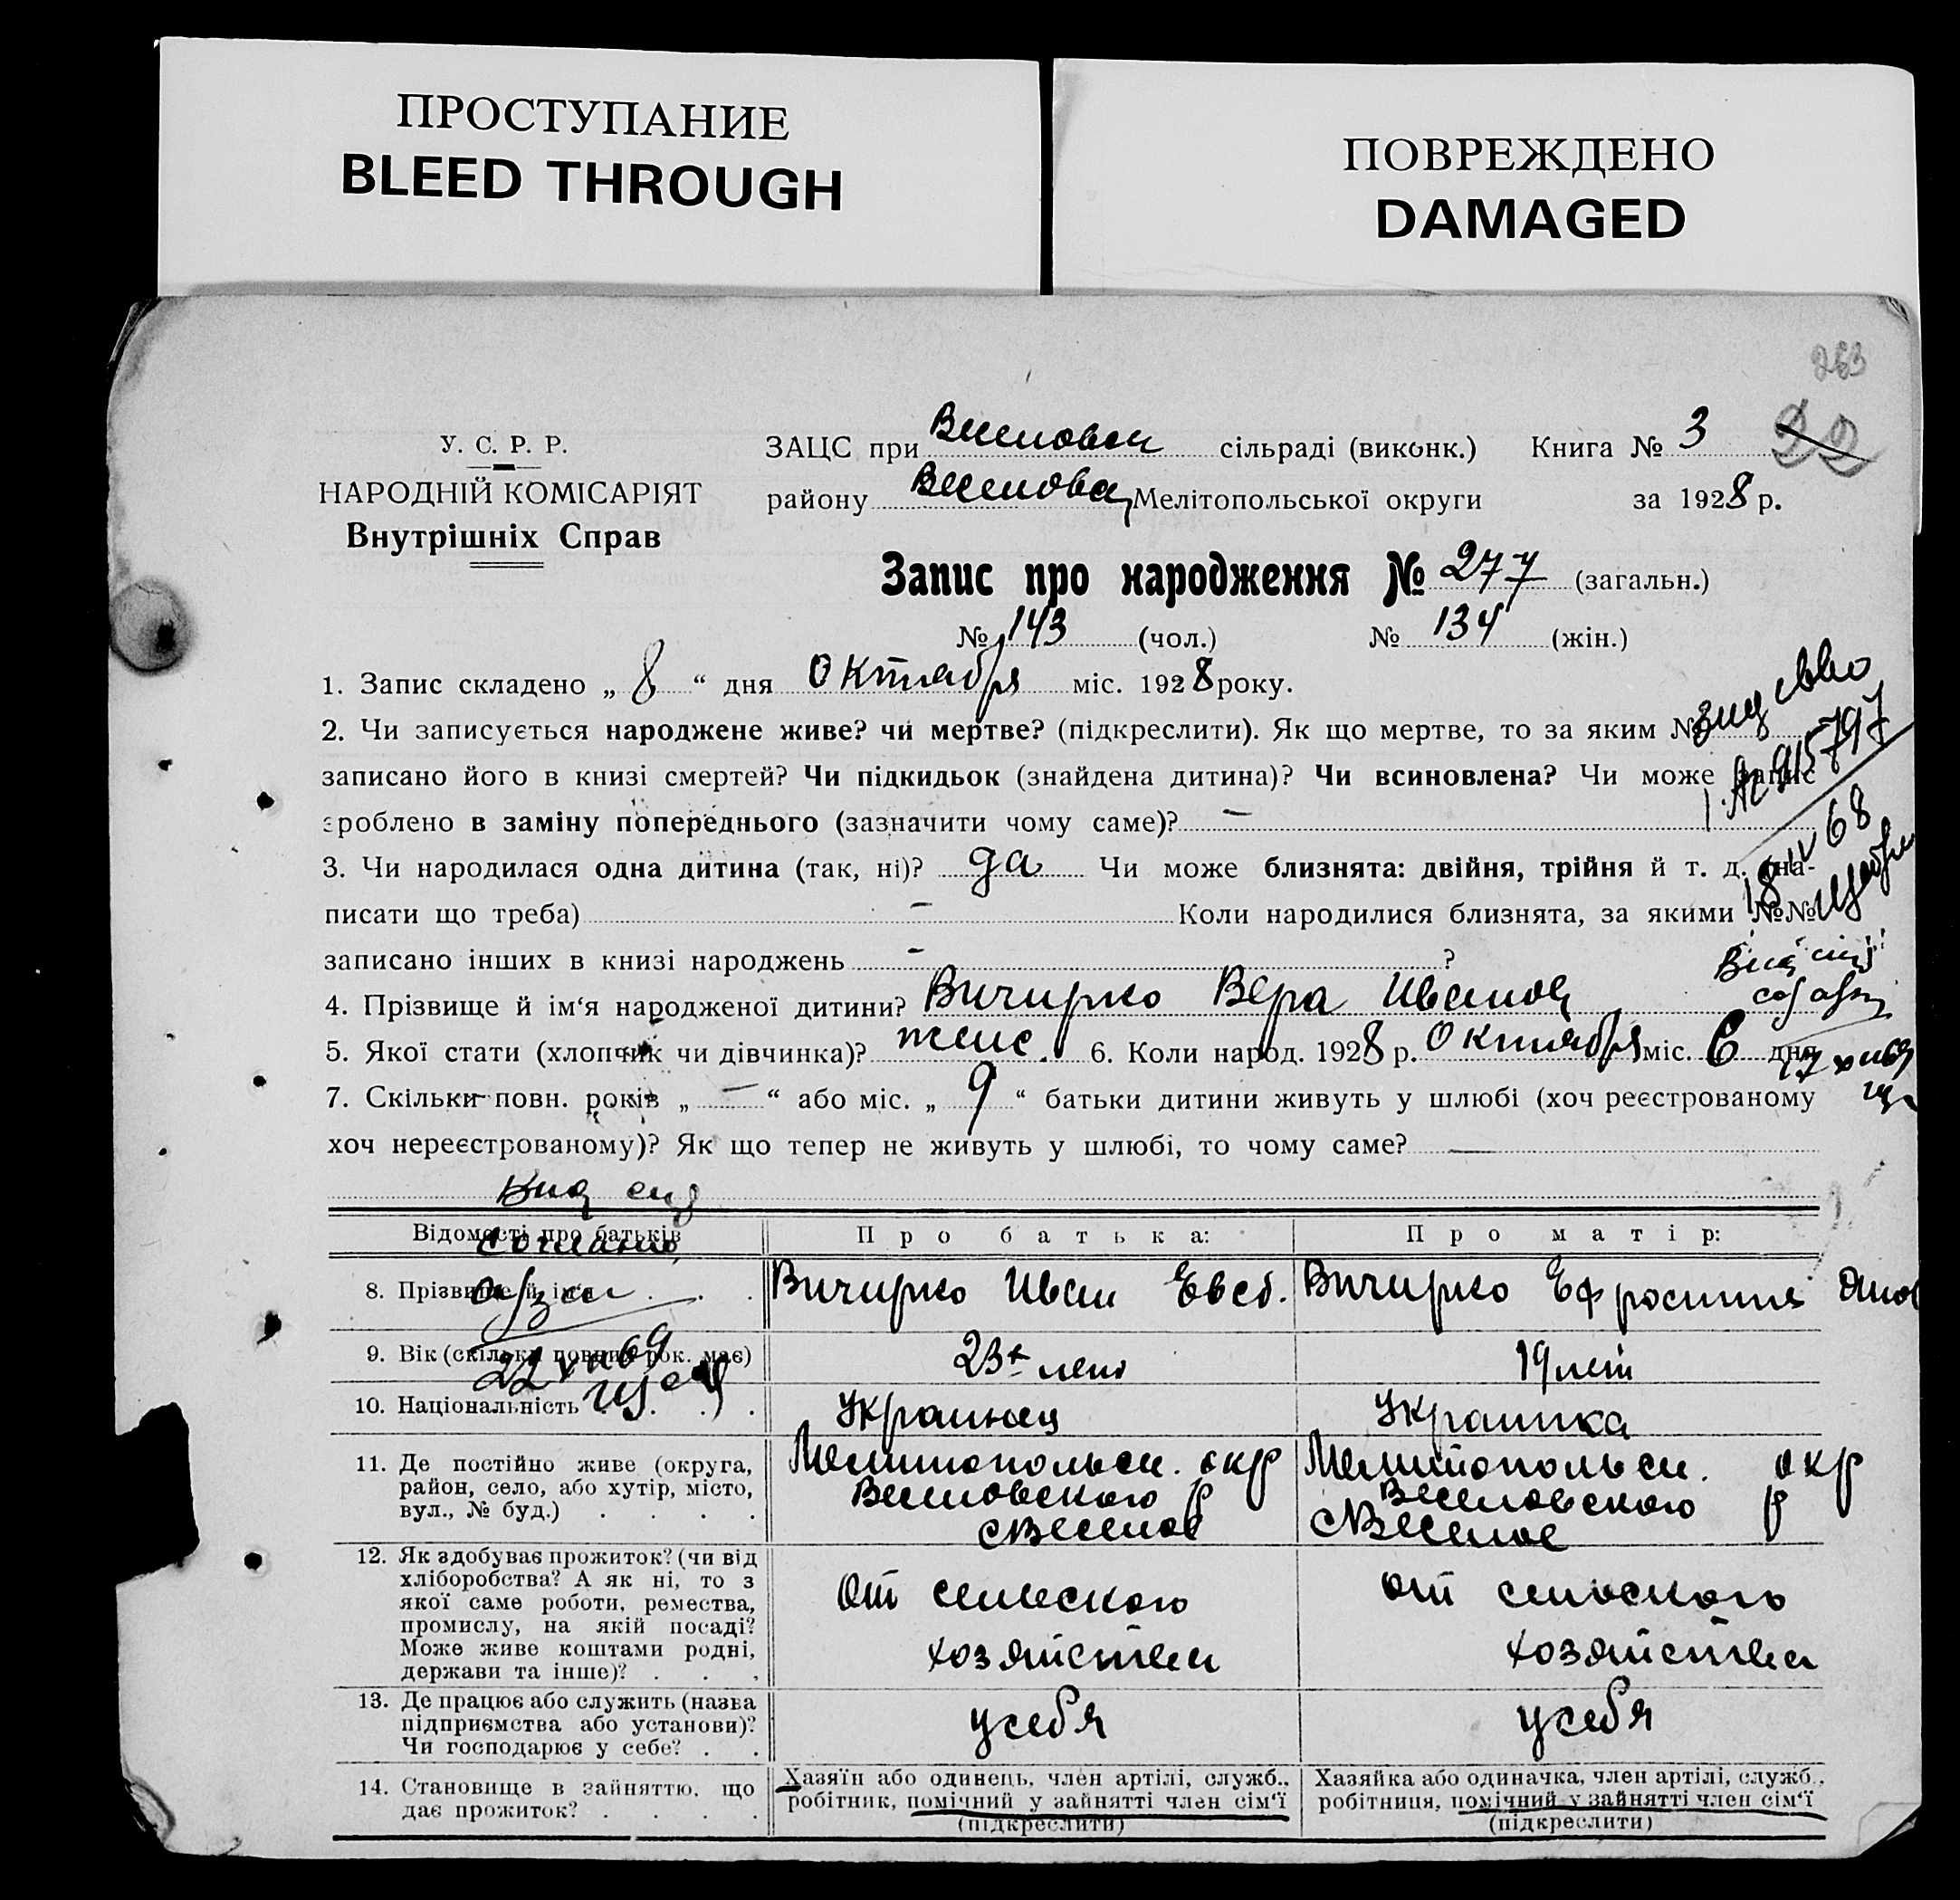 ПРОСТУПАНИЕ
BLEED THROUGH
ПОВРЕЖДЕНО
DAMAGED
263
22
У. С. Р. Р.
НАРОДНІЙ КОМІСАРІЯТ
Внутрішніх Справ
ЗАЦС при Веселовск сільраді (виконк.) Книга № 3
району Веселовск Мелітопольської округи за 1928 р.
Запис про народження № 277 (загальн.)
№ 143 (чол.) № 134 (жін.)
1. Запис складено „ 8 “ дня Октября міс. 1928 року.
2. Чи записується народжене живе? чи мертве? (підкреслити). Як що мертве, то за яким №
записано його в книзі смертей? Чи підкидьок (знайдена дитина)? Чи всиновлена? Чи може запис
зроблено в заміну попереднього (зазначити чому саме)? —
3. Чи народилася одна дитина (так, ні)? да Чи може близнята: двійня, трійня й т. д. (на-
писати що треба) - Коли народилися близнята, за якими №№
записано інших в книзі народжень - ?
915797
18 IV 68
4. Прізвище й ім‘я народженої дитини? Вичирко Вера Иванов
5. Якої стати (хлопчик чи дівчинка)? женс. 6. Коли народ. 1928 р. Октября міс. 6 дня
7. Скільки повн. років „ — “ або міс. „ 9 “ батьки дитини живуть у шлюбі (хоч реєстрованому
хоч нереєстрованому)? Як що тепер не живуть у шлюбі, то чому саме? —
Відомості про батьків
П р о б а т ь к а:
П р о м а т і р:
8. Прізвище й ім‘я
Вичирко Иван Евсб.
Вичирко Ефросиния
9. Вік (скільки повних рок. має)
23 лет
19 лет
22 XII 69
10. Національність
Украинец
Украинка
11. Де постійно живе (округа,
район, село, або хутір, місто,
вул., № буд.)
Мелитопольск. окр
Веселовского р
с Веселое
Мелитопольск. окр
Веселовского р
с Веселое
12. Як здобуває прожиток? (чи від
хліборобства? А як ні, то з
якої саме роботи, ремества,
промислу, на якій посаді?
Може живе коштами родні,
держави та інше)?
От сельского
хозяйства
от сельского
хозяйства
13. Де працює або служить (назва
підприємства або установи)?
Чи господарює у себе?
у себя
у себя
14. Становище в зайняттю, що
дає прожиток?
Хазяїн або одинець, член артілі, служб.,
робітник, помічний у зайнятті член сім‘ї
(підкреслити)
Хазяйка або одиначка, член артілі, служб.,
робітниця, помічний у зайнятті член сім‘ї
(підкреслити)